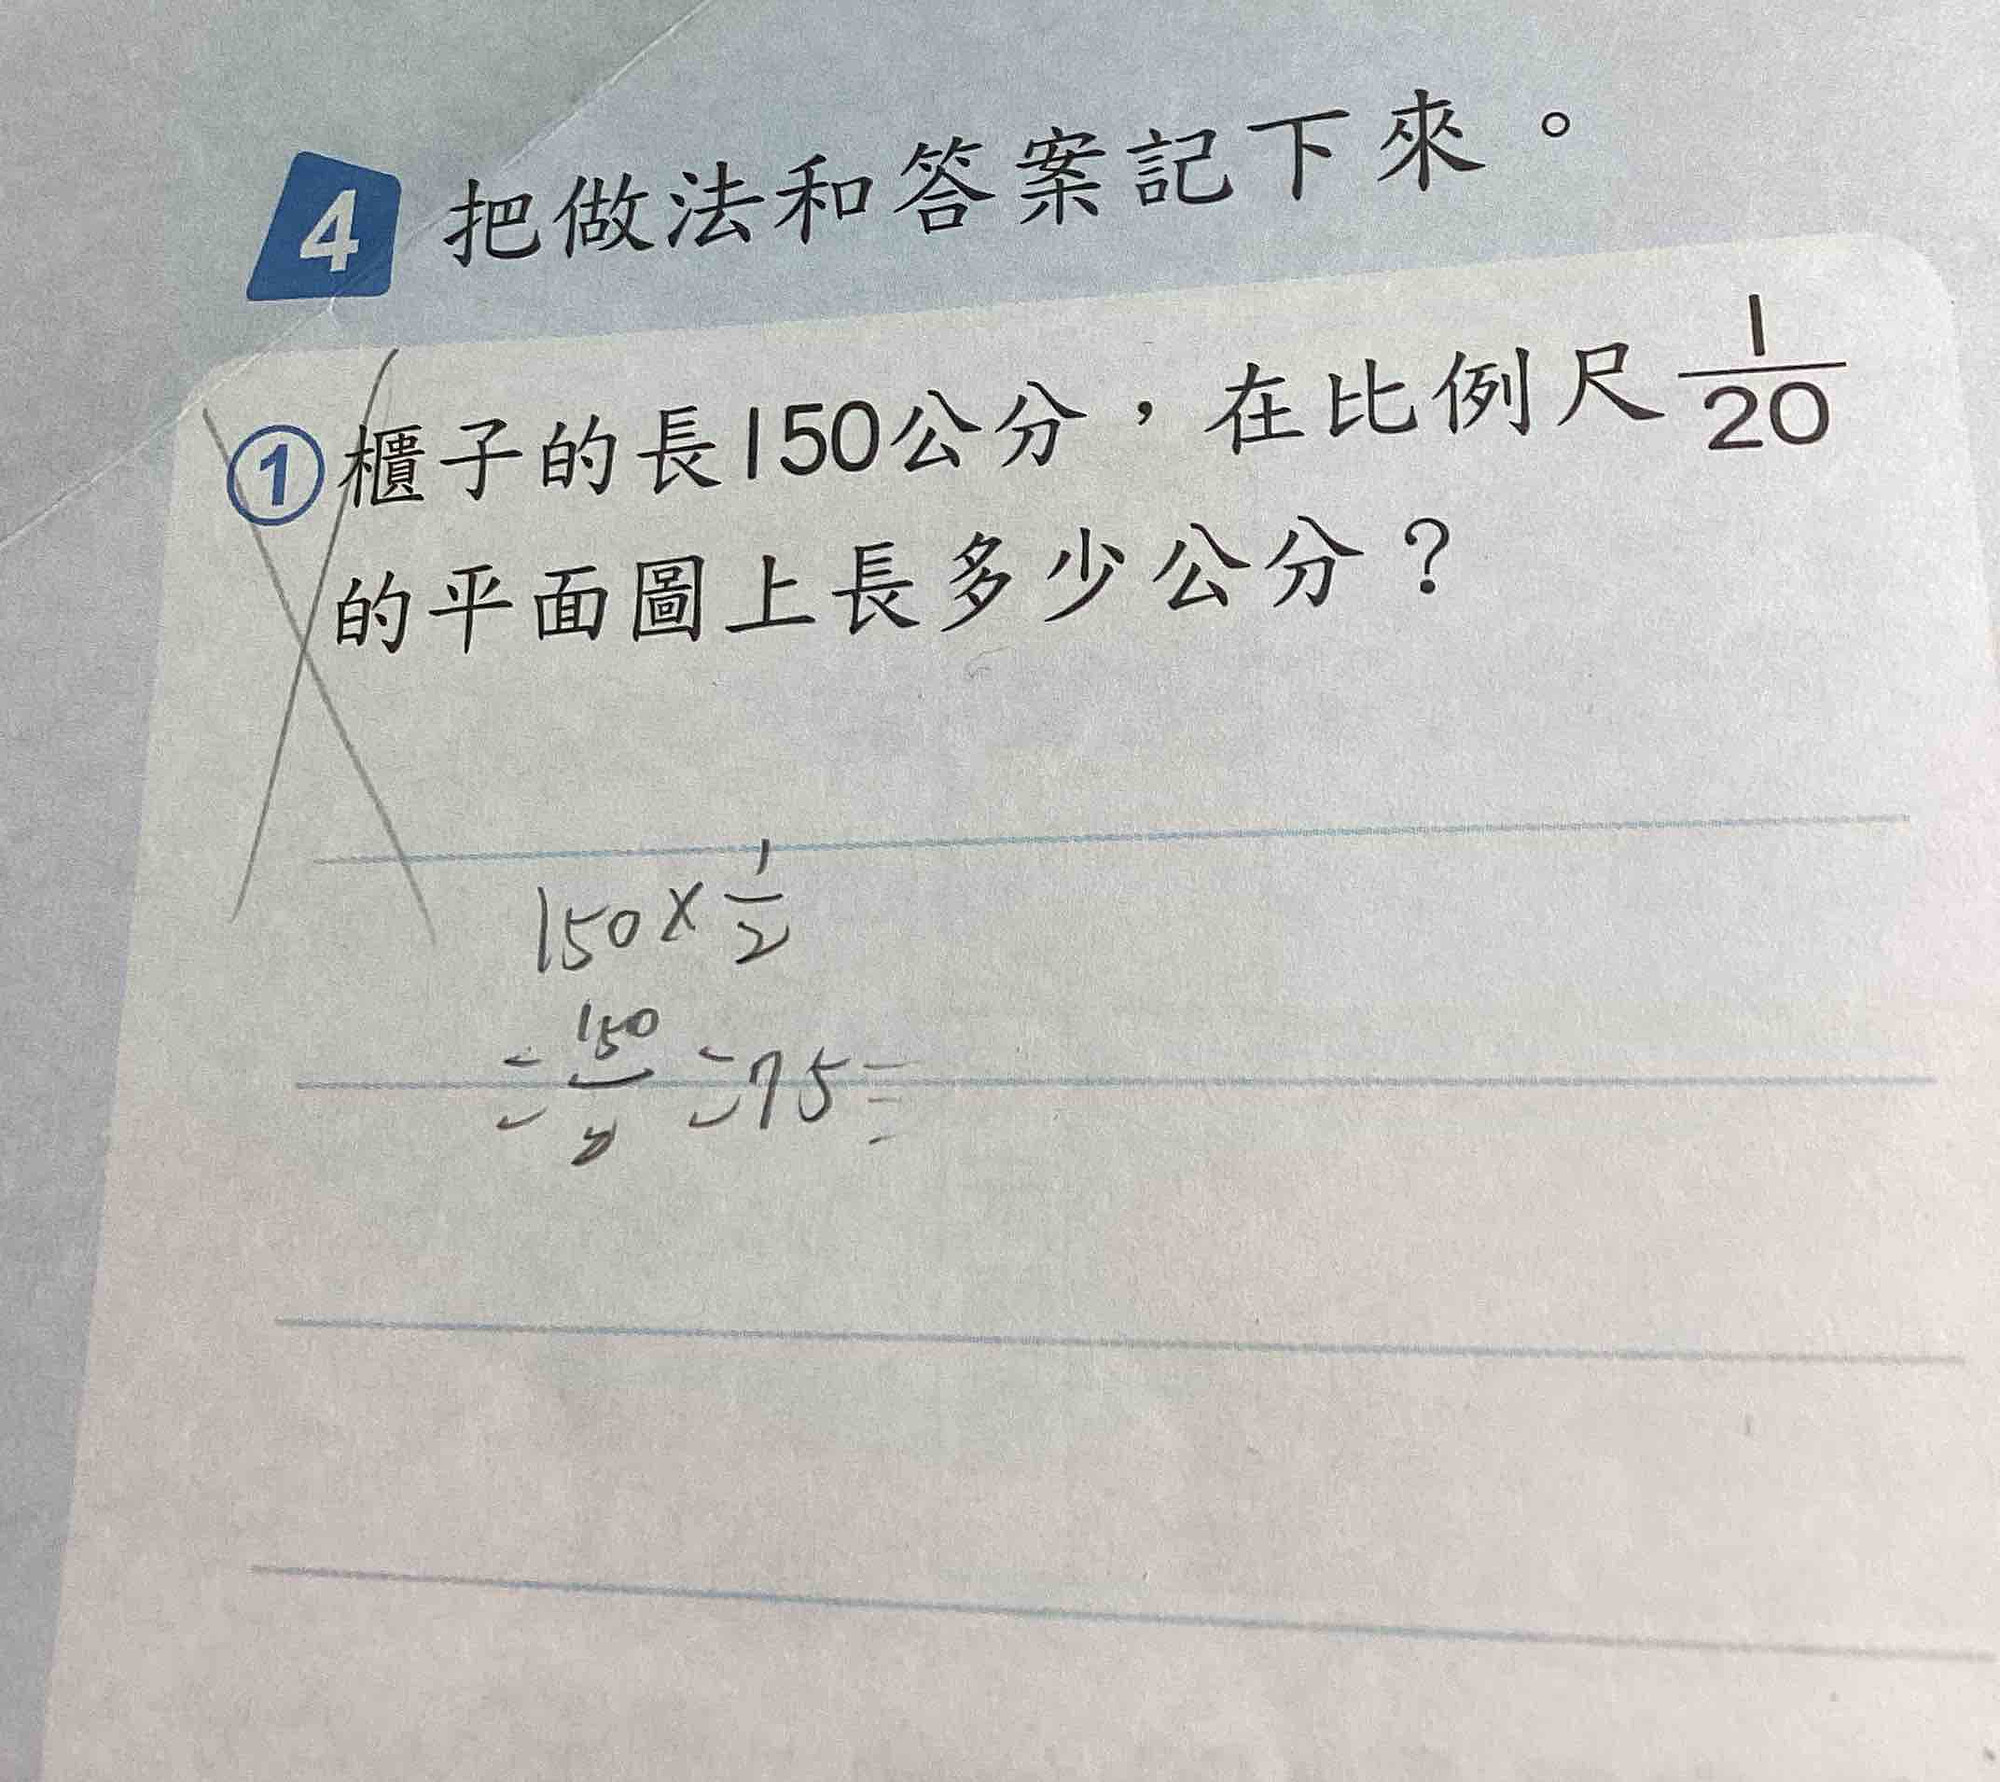 4 把做法和答案記下來。
①櫃子的長150公分，在比例尺 1/20
的平面圖上長多少公分？
150 × 1/2
= 150/2 = 75